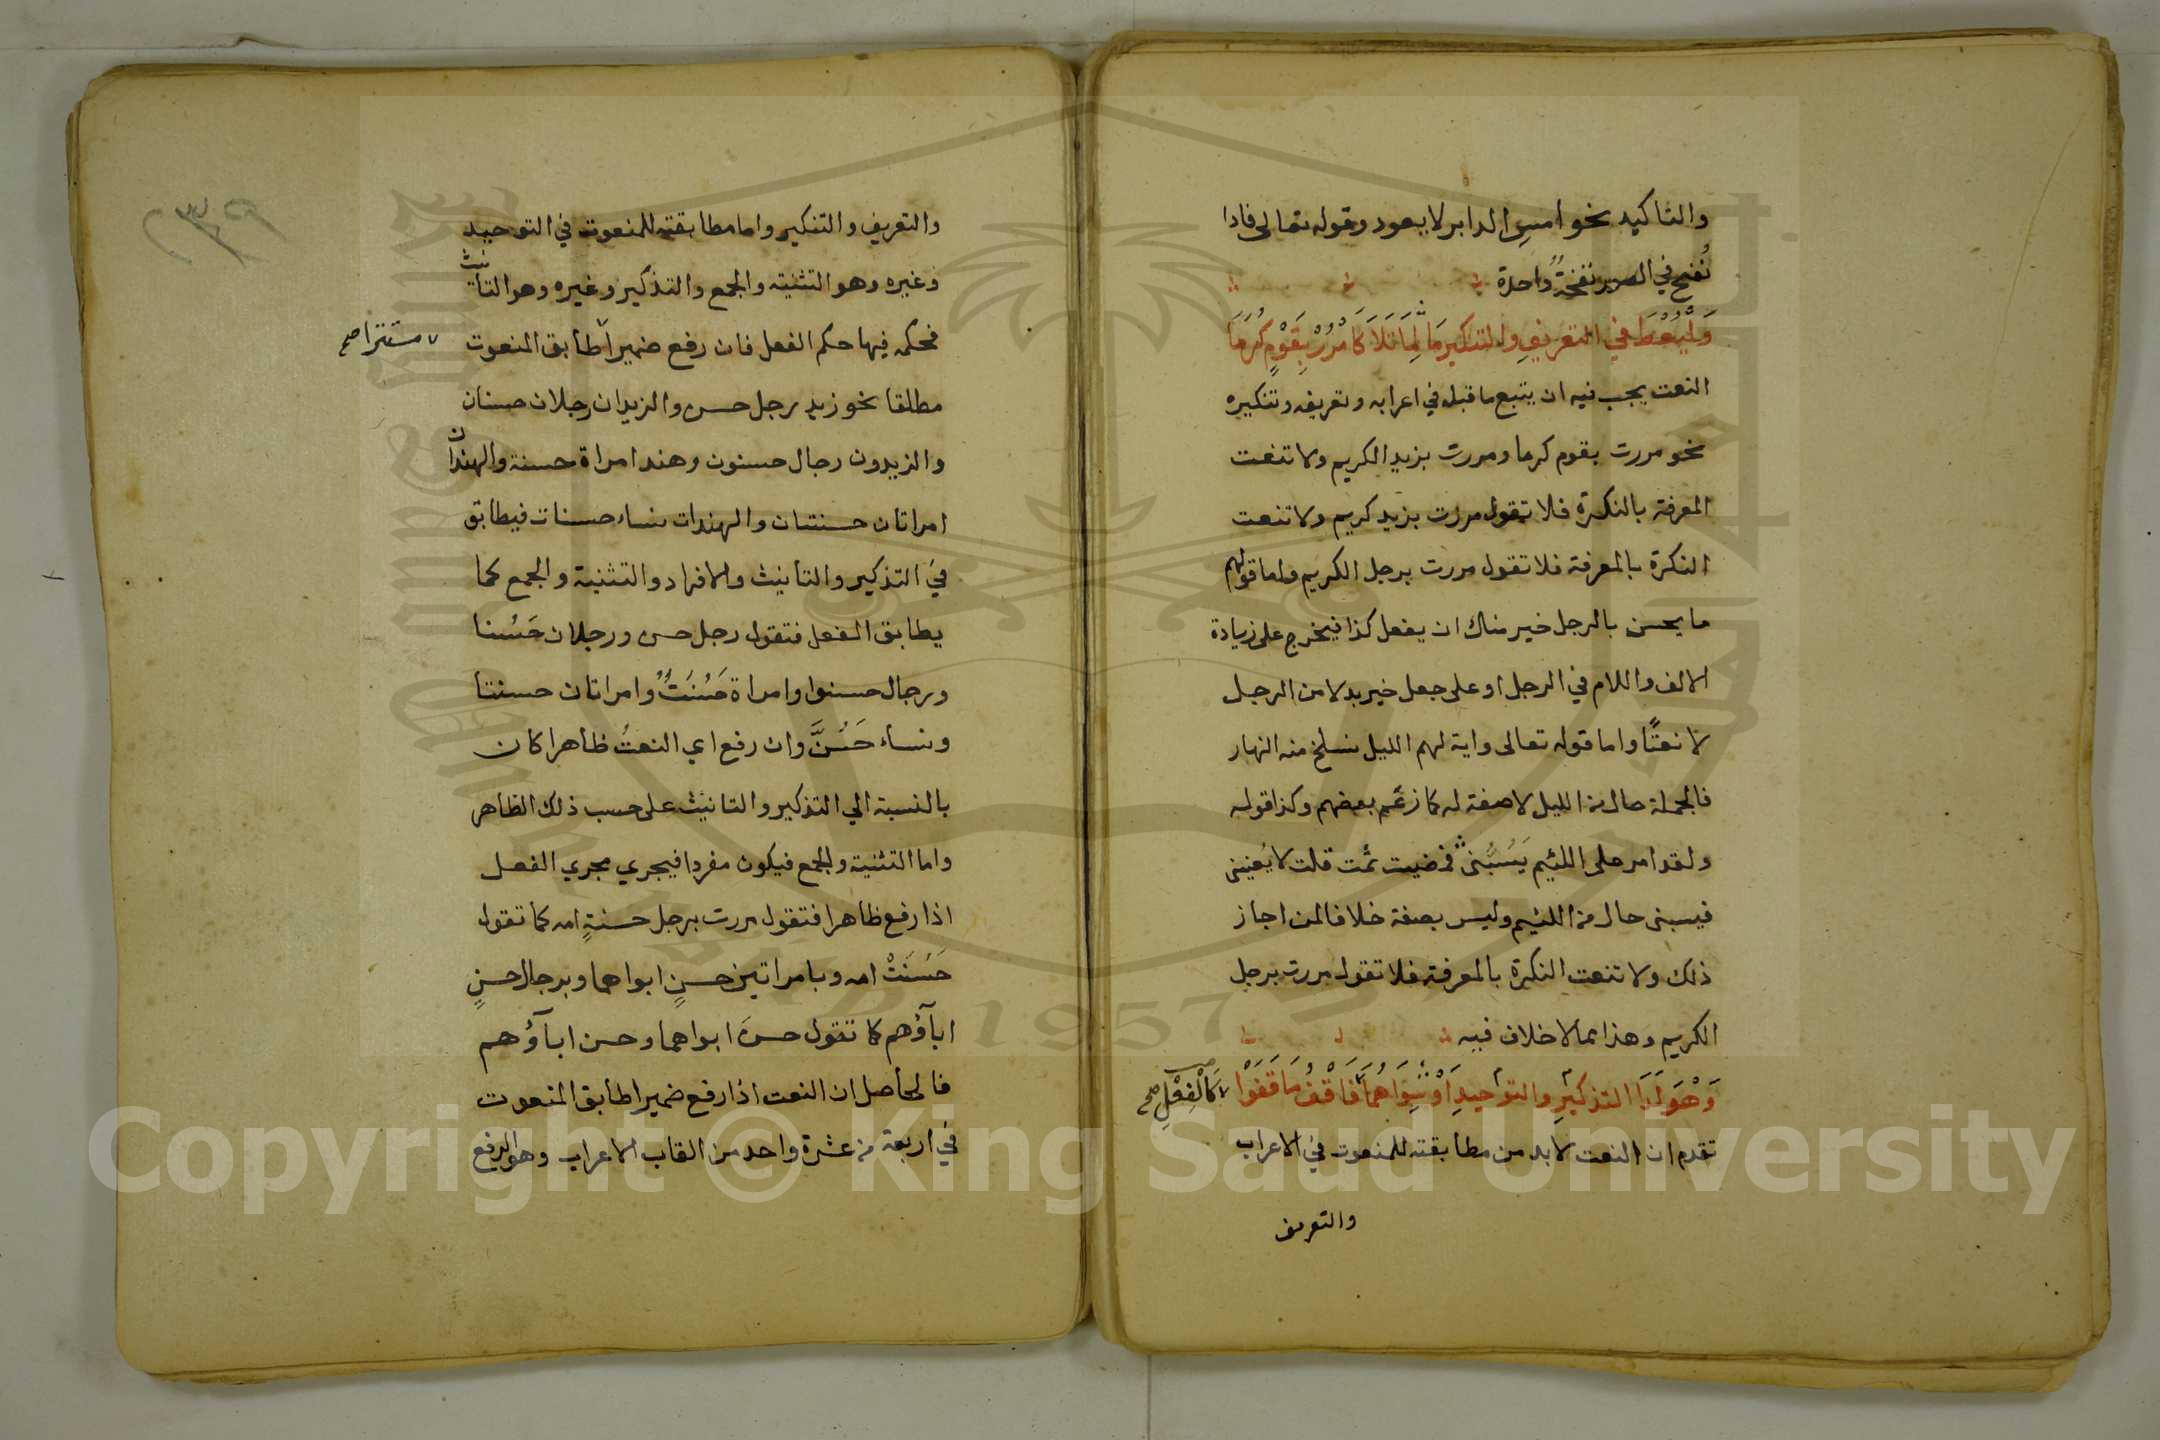 والتاكيد نحو امسِ الدابر لا يعود وقوله تعالى فاذا
نُفخ في الصور نفخةٌ واحدة
وَلْيُعْطَ في التعريفِ والتنكيرِ مَا لِمَا تَلَا كَامْرُرْ بِقَوْمٍ كُرَمَا
النعت يجب فيه ان يتبع ما قبله في اعرابه وتعريفه وتنكيره
نحو مررت بقوم كرما ومررت بزيد الكريم ولا تنعت
المعرفة بالنكرة فلا تقول مررت بزيد كريم ولا تنعت
النكرة بالمعرفة فلا تقول مررت برجل الكريم واما قولهم
ما يحسن بالرجل خير مناك ان يفعل كذا فيخرج على زيادة
الالف واللام في الرجل او على جعل خير بدلا من الرجل
لا نعتًا واما قوله تعالى واية لهم الليل نسلخ منه النهار
فالجملة حال من الليل لا صفة له كما زعم بعضهم وكذا قوله
ولقد امر على اللئيم يَسُبُّنى فمضيت ثمت قلت لا يُعنينى
فيسبنى حال من اللئيم وليس بصفة خلافا لمن اجاز
ذلك ولا تنعت النكرة بالمعرفة فلا تقول مررت برجل
الكريم وهذا مما لا خلاف فيه
وَهْوَ لَدَا التذكيرِ والتوحيدِ أَوْ سِوَاهُمَا فَاقْفُ مَا قَفَوْا
كَالْفِعْلِ صح
تقدم ان النعت لا بد من مطابقته للمنعوت في الاعراب
والتعريف
٢٣٩
والتعريف والتنكير واما مطابقته للمنعوت في التوحيد
وغيره وهو التثنية والجمع والتذكير وغيره وهو التانيث
فحكمه فيها حكم الفعل فان رفع ضميرا طابق المنعوت
مستترا صح
مطلقا نحو زيد رجل حسن والزيدان رجلان حسنان
والزيدون رجال حسنون وهند امراة حسنة والهندان
امراتان حسنتان والهندات نساء حسنات فيطابق
في التذكير والتانيث والافراد والتثنية والجمع كما
يطابق الفعل فتقول رجل حسن ورجلان حَسُنا
ورجال حسنوا وامراة حَسُنَتْ وامراتان حسنتا
ونساء حَسُنَّ وان رفع اي النعتُ ظاهرا كان
بالنسبة الي التذكير والتانيث على حسب ذلك الظاهر
واما التثنية والجمع فيكون مفردا فيجري مجري الفعل
اذا رفع ظاهرا فتقول مررت برجل حسنةٍ امه كما تقول
حَسُنَتْ امه وبامراتين حسنٍ ابواهما وبرجال حسنٍ
ابآؤهم كما تقول حسنَ ابواهما وحسن ابآؤُهم
فالحاصل ان النعت اذا رفع ضميرا طابق المنعوت
في اربعة من عشرة واحد من القاب الاعراب وهو الرفع
1957
Copyright © King Saud University